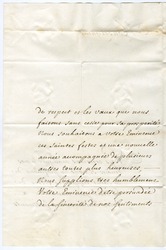 du respect et les vœux que nous
faisons sans cesse pour sa prosperité
Nous souhaitons a votre Eminence
ces saintes festes et une nouvelle
année accompagnée de plusieurs
autres toutes plus heureuses,
Nous supplions tres humblement
Votre Eminence d'etre persuadée
de la sincerité de nos sentiments